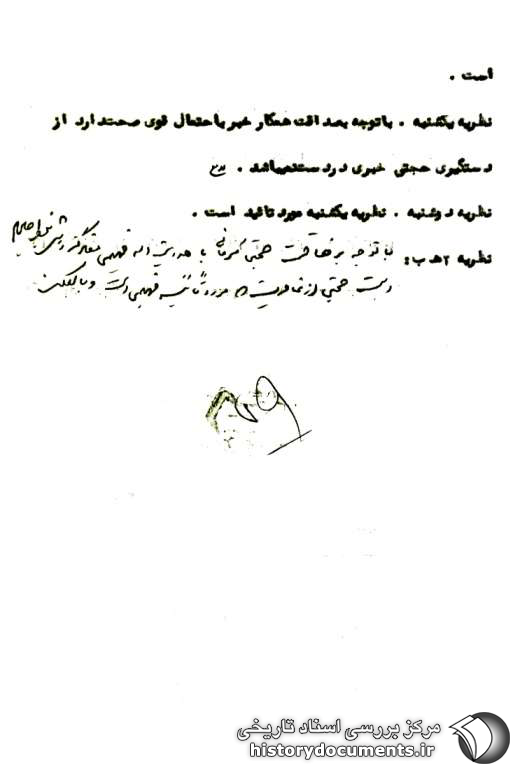 است .
نظریه یکشنبه . باتوجه بصداقت همکار خبر باحتمال قوی صحت دارد از
دستگیری حجتی خبری در دست نمیباشد .
نظریه دوشنبه . نظریه یکشنبه مورد تائید است .
نظریه ۲هـ ب : با توجه به رفاقت حجتی کرمانی با هدایت اله فهیمی
حجتی از نامبرده مورد تائید فهیمی است و
مرکز بررسی اسناد تاریخی
historydocuments.ir